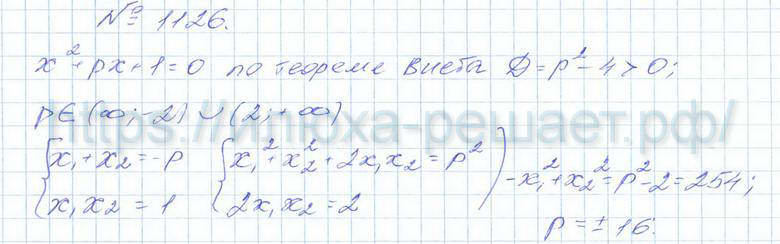 № 1126.
x²+px+1=0 по теореме Виета D=p²-4>0;
p∈(∞;-2)∪(2;+∞)
https://илюха-решает.рф/
{x₁+x₂=-p {x₁²+x₂²+2x₁x₂=p² ) -x₁²+x₂²=p²-2=254;
{x₁x₂=1 {2x₁x₂=2
p=±16.